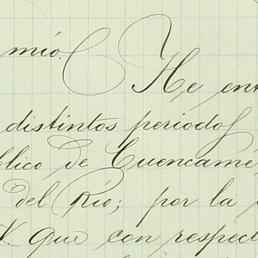 mío. He en
distintos periodos
blico de Cuencamé
del Río; por la
que con respec